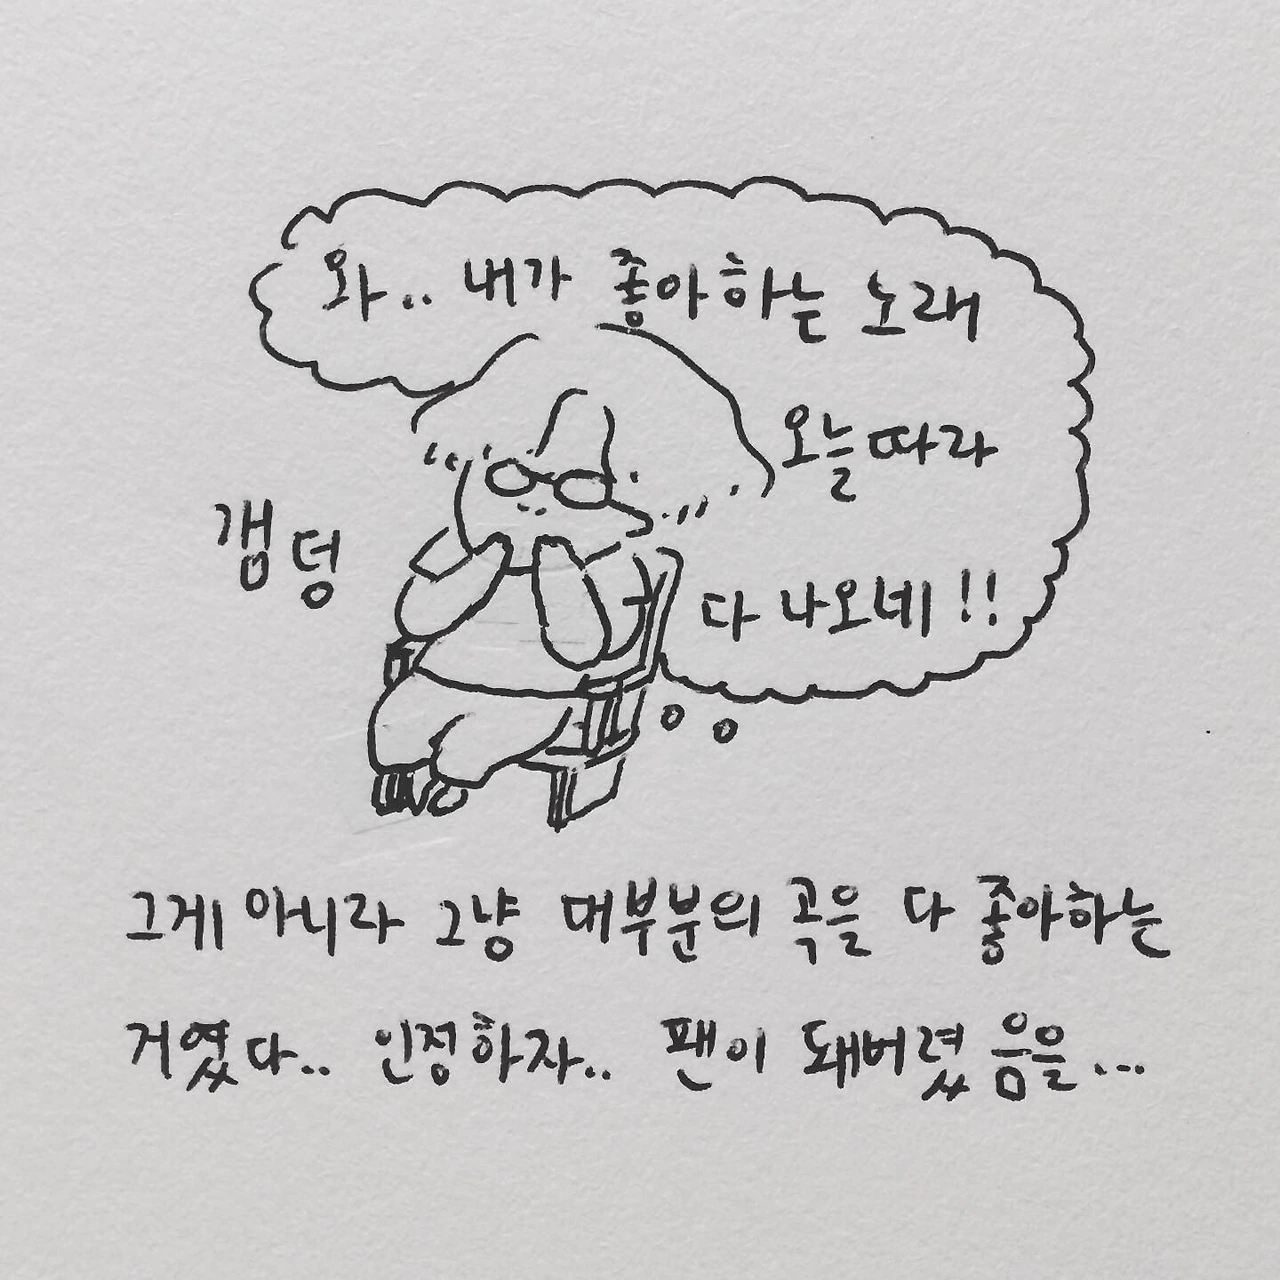 와.. 내가 좋아하는 노래
오늘따라
다 나오네!!
갬덩
그게 아니라 그냥 대부분의 곡을 다 좋아하는
거였다.. 인정하자.. 팬이 돼버렸음을...